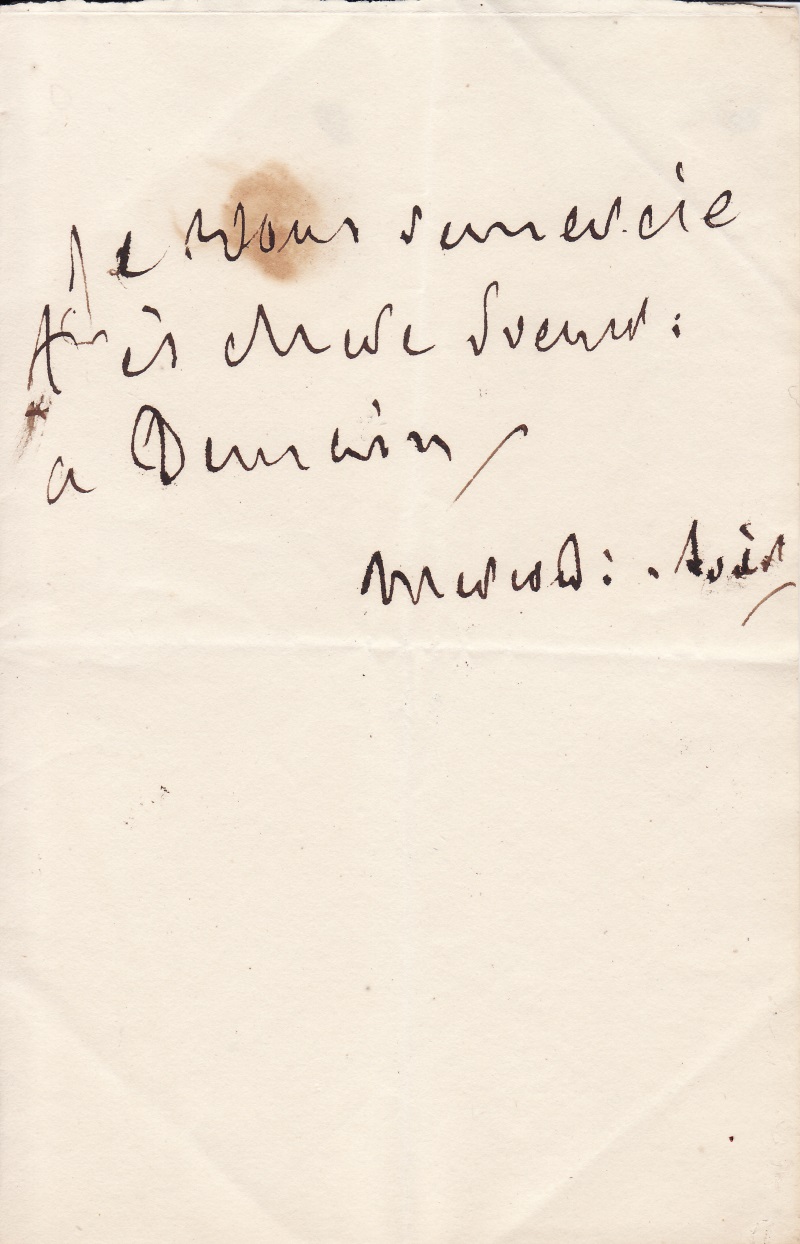 Je vous remercie
très chère
a Demain
mercredi. soir